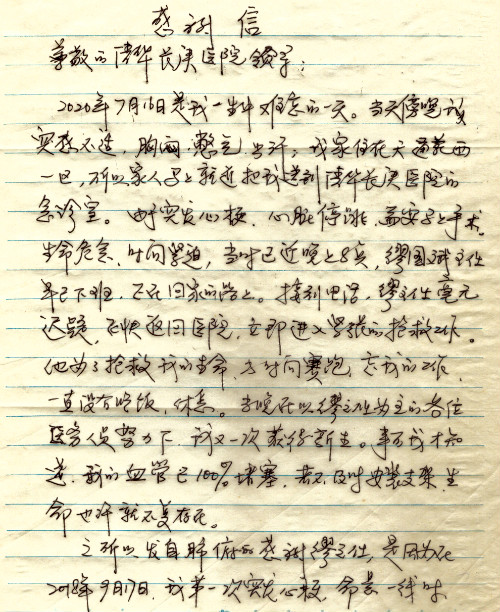 感谢信
尊敬的清华长庚医院领导：
2020年7月16日是我一生中难忘的一天。当天傍晚我
突感不适，胸闷、憋气、出汗，我家住在天通苑西
一区，所以家人马上就近把我送到清华长庚医院的
急诊室。由于突发心梗，心脏停跳，需要马上手术。
生命危急，时间紧迫，当时已近晚上8点，缪国斌主任
早已下班，正在回家的路上。接到电话，缪主任毫无
迟疑，尽快返回医院，立即进入紧张的抢救工作。
他为了抢救我的生命，与时间赛跑，忘我的工作，
一直没有吃饭，休息。当晚在以缪主任为主的各位
医务人员努力下，我又一次获得新生。事后我才知
道，我的血管已100%堵塞，若不及时安装支架，生
命也许就不复存在。
之所以发自肺俯的感谢缪主任，是因为在
2018年9月17日，我第一次突发心梗，命悬一线时